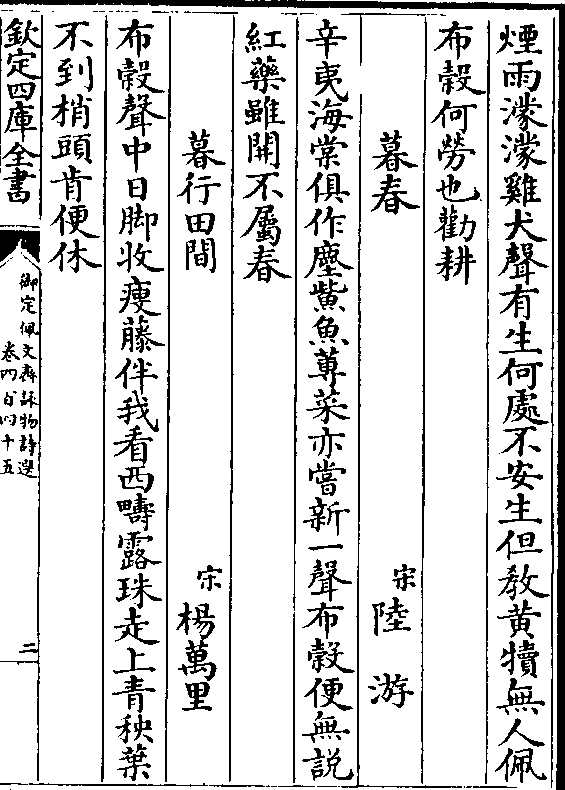 煙雨濛濛雞犬聲有生何處不安生但教黃犢無人佩
布穀何勞也勸耕
暮春
宋陸游
辛夷海棠俱作塵鮆魚蓴菜亦嘗新一聲布穀便無說
紅藥雖開不屬春
暮行田間
宋楊萬里
布穀聲中日脚收瘦藤伴我看西疇露珠走上青秧葉
不到梢頭肯便休
欽定四庫全書
御定佩文齋詠物詩選
卷四百四十五
二